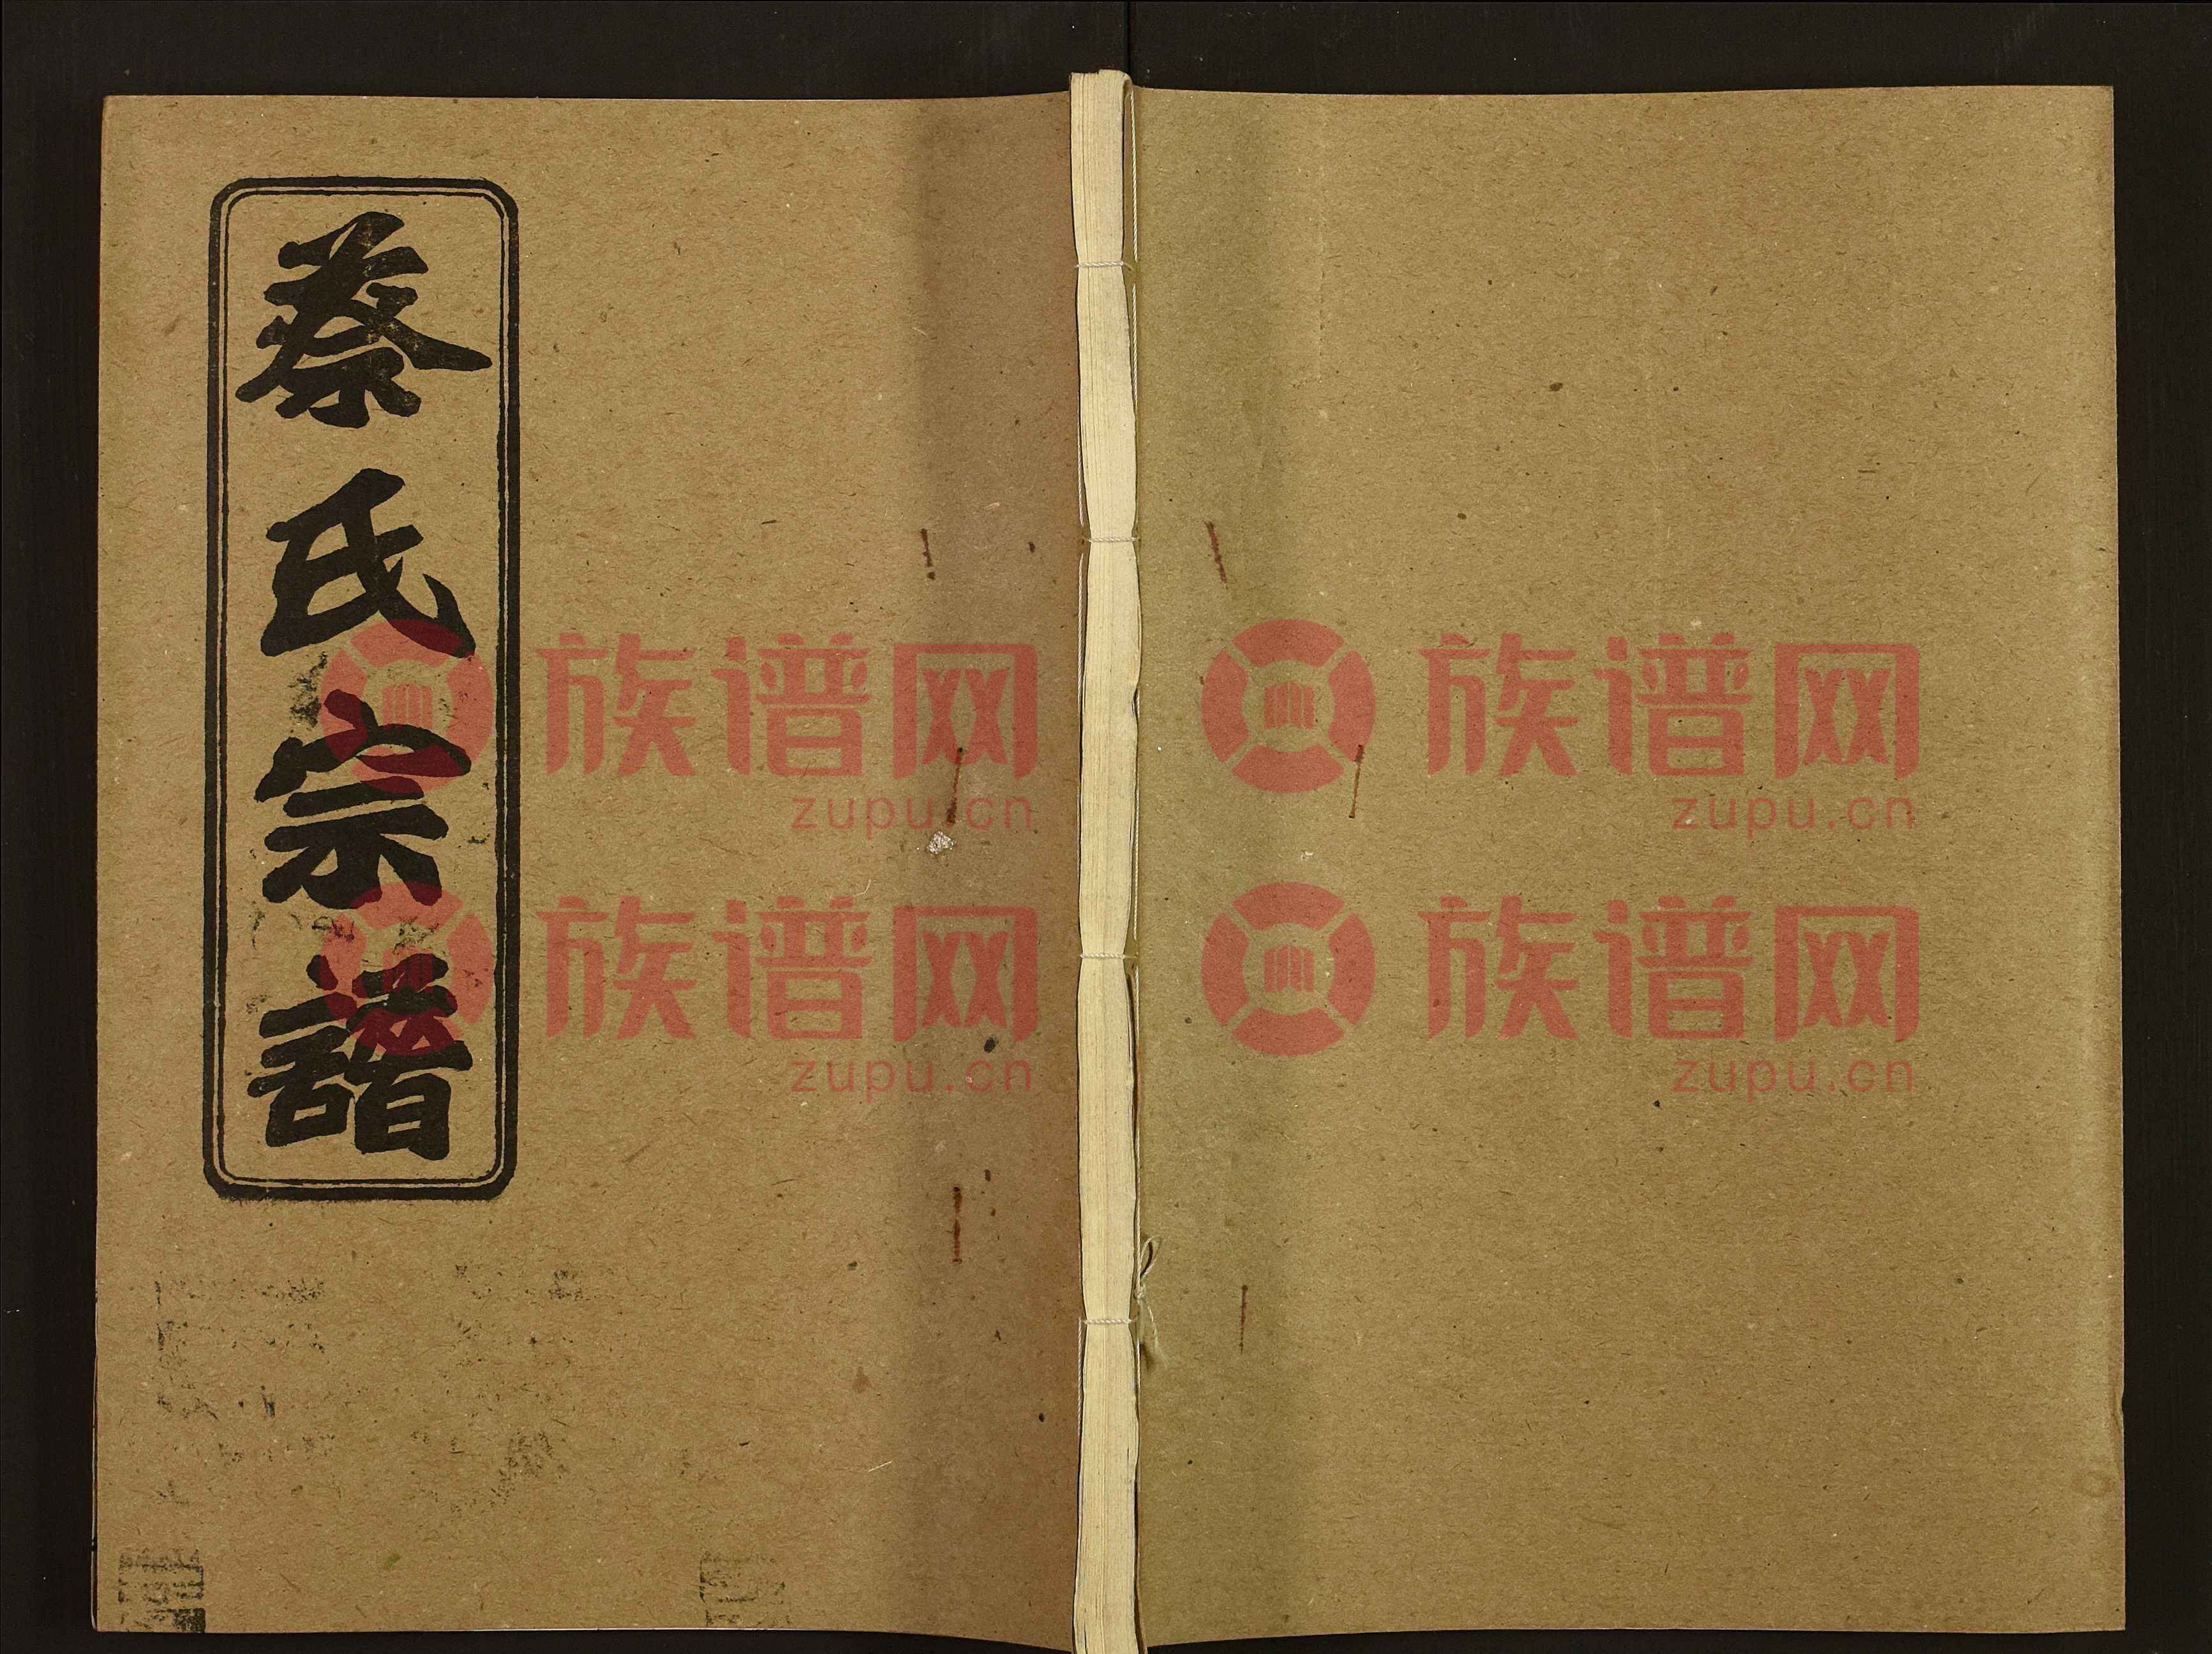 蔡氏宗譜
族谱网
zupu.cn
族谱网
zupu.cn
族谱网
zupu.cn
族谱网
zupu.cn